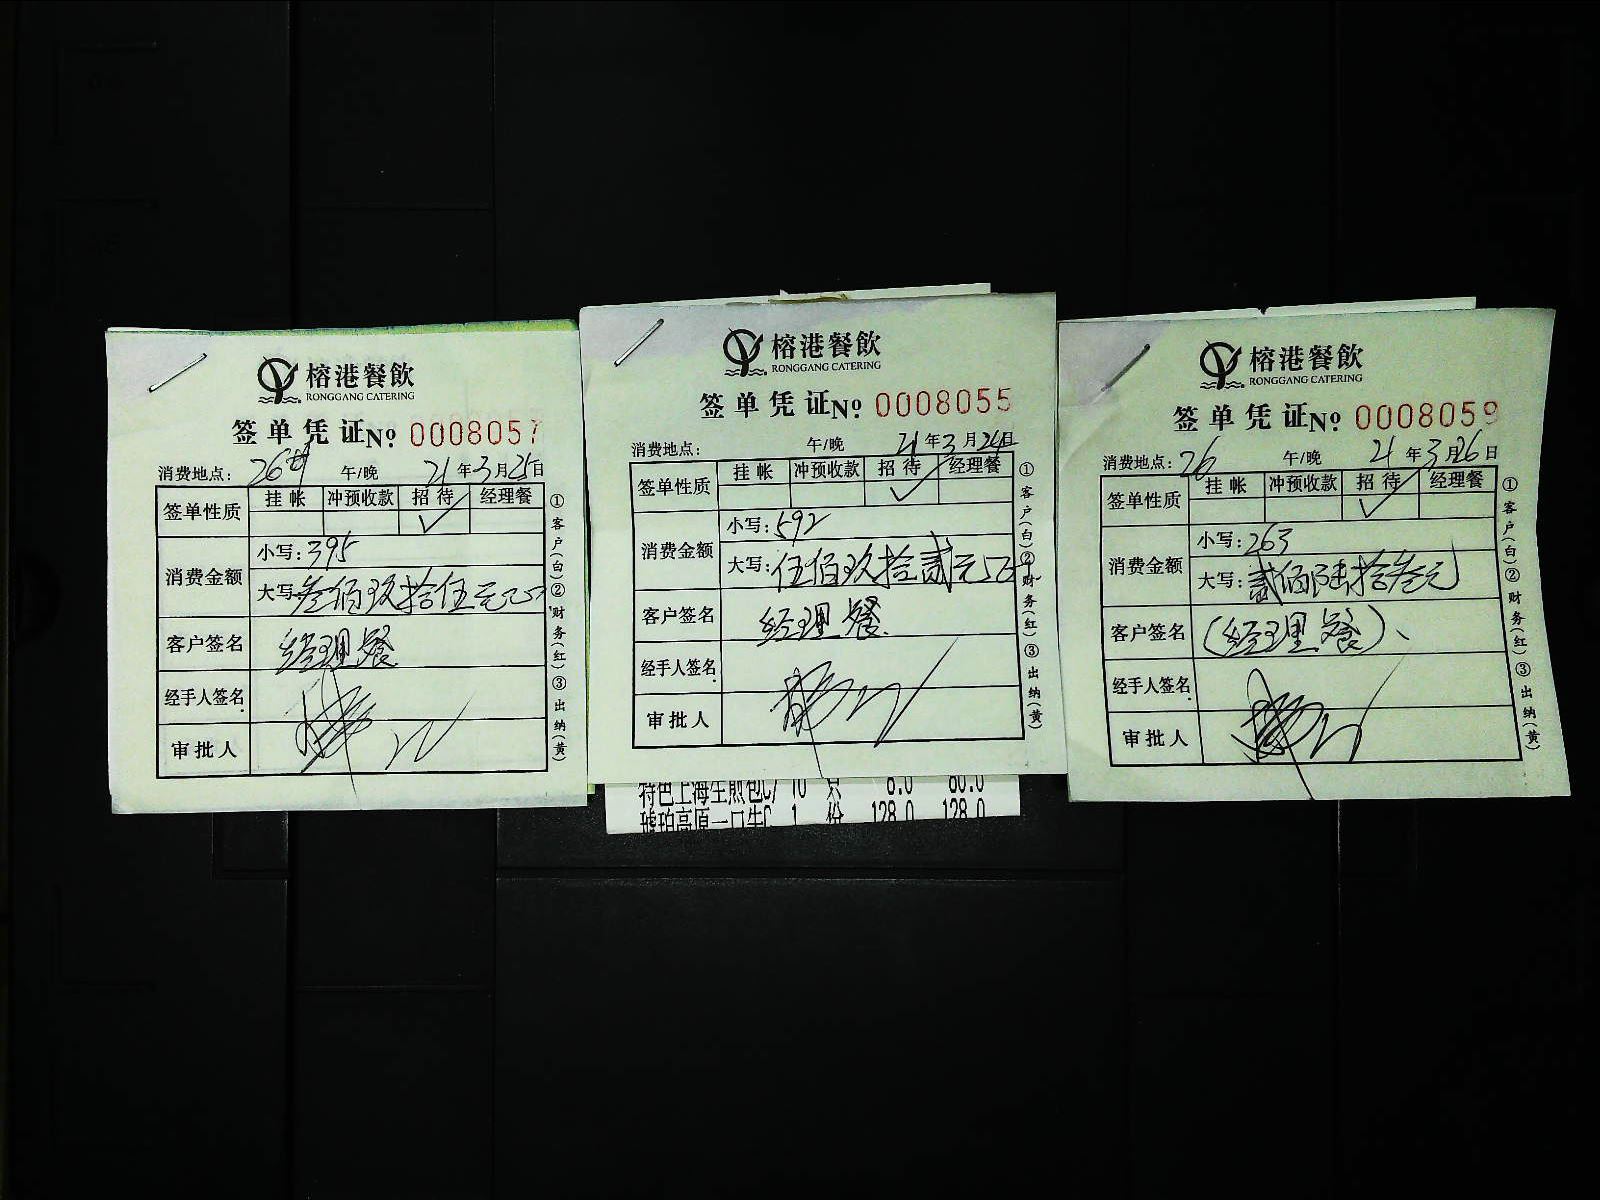 榕港餐飲
RONGGANG CATERING
签单凭证№ 0008057
消费地点: 26 午/晚 21年3月25日
签单性质 挂帐 冲预收款 招待 经理餐
✓
消费金额 小写: 395
大写: 叁佰玖拾伍元
客户签名 经理餐
经手人签名
审批人
①客户(白)②财务(红)③出纳(黄)
榕港餐飲
RONGGANG CATERING
签单凭证№ 0008055
消费地点: 午/晚 21年3月24日
签单性质 挂帐 冲预收款 招待 经理餐
✓
消费金额 小写: 592
大写: 伍佰玖拾贰元
客户签名 经理餐
经手人签名
审批人
①客户(白)②财务(红)③出纳(黄)
特色上海生煎包 10 只 8.0 80.0
琥珀高原一口牛 1 份 128.0 128.0
榕港餐飲
RONGGANG CATERING
签单凭证№ 0008059
消费地点: 26 午/晚 21年3月26日
签单性质 挂帐 冲预收款 招待 经理餐
✓
消费金额 小写: 263
大写: 贰佰陆拾叁元
客户签名 (经理餐)、
经手人签名
审批人
①客户(白)②财务(红)③出纳(黄)